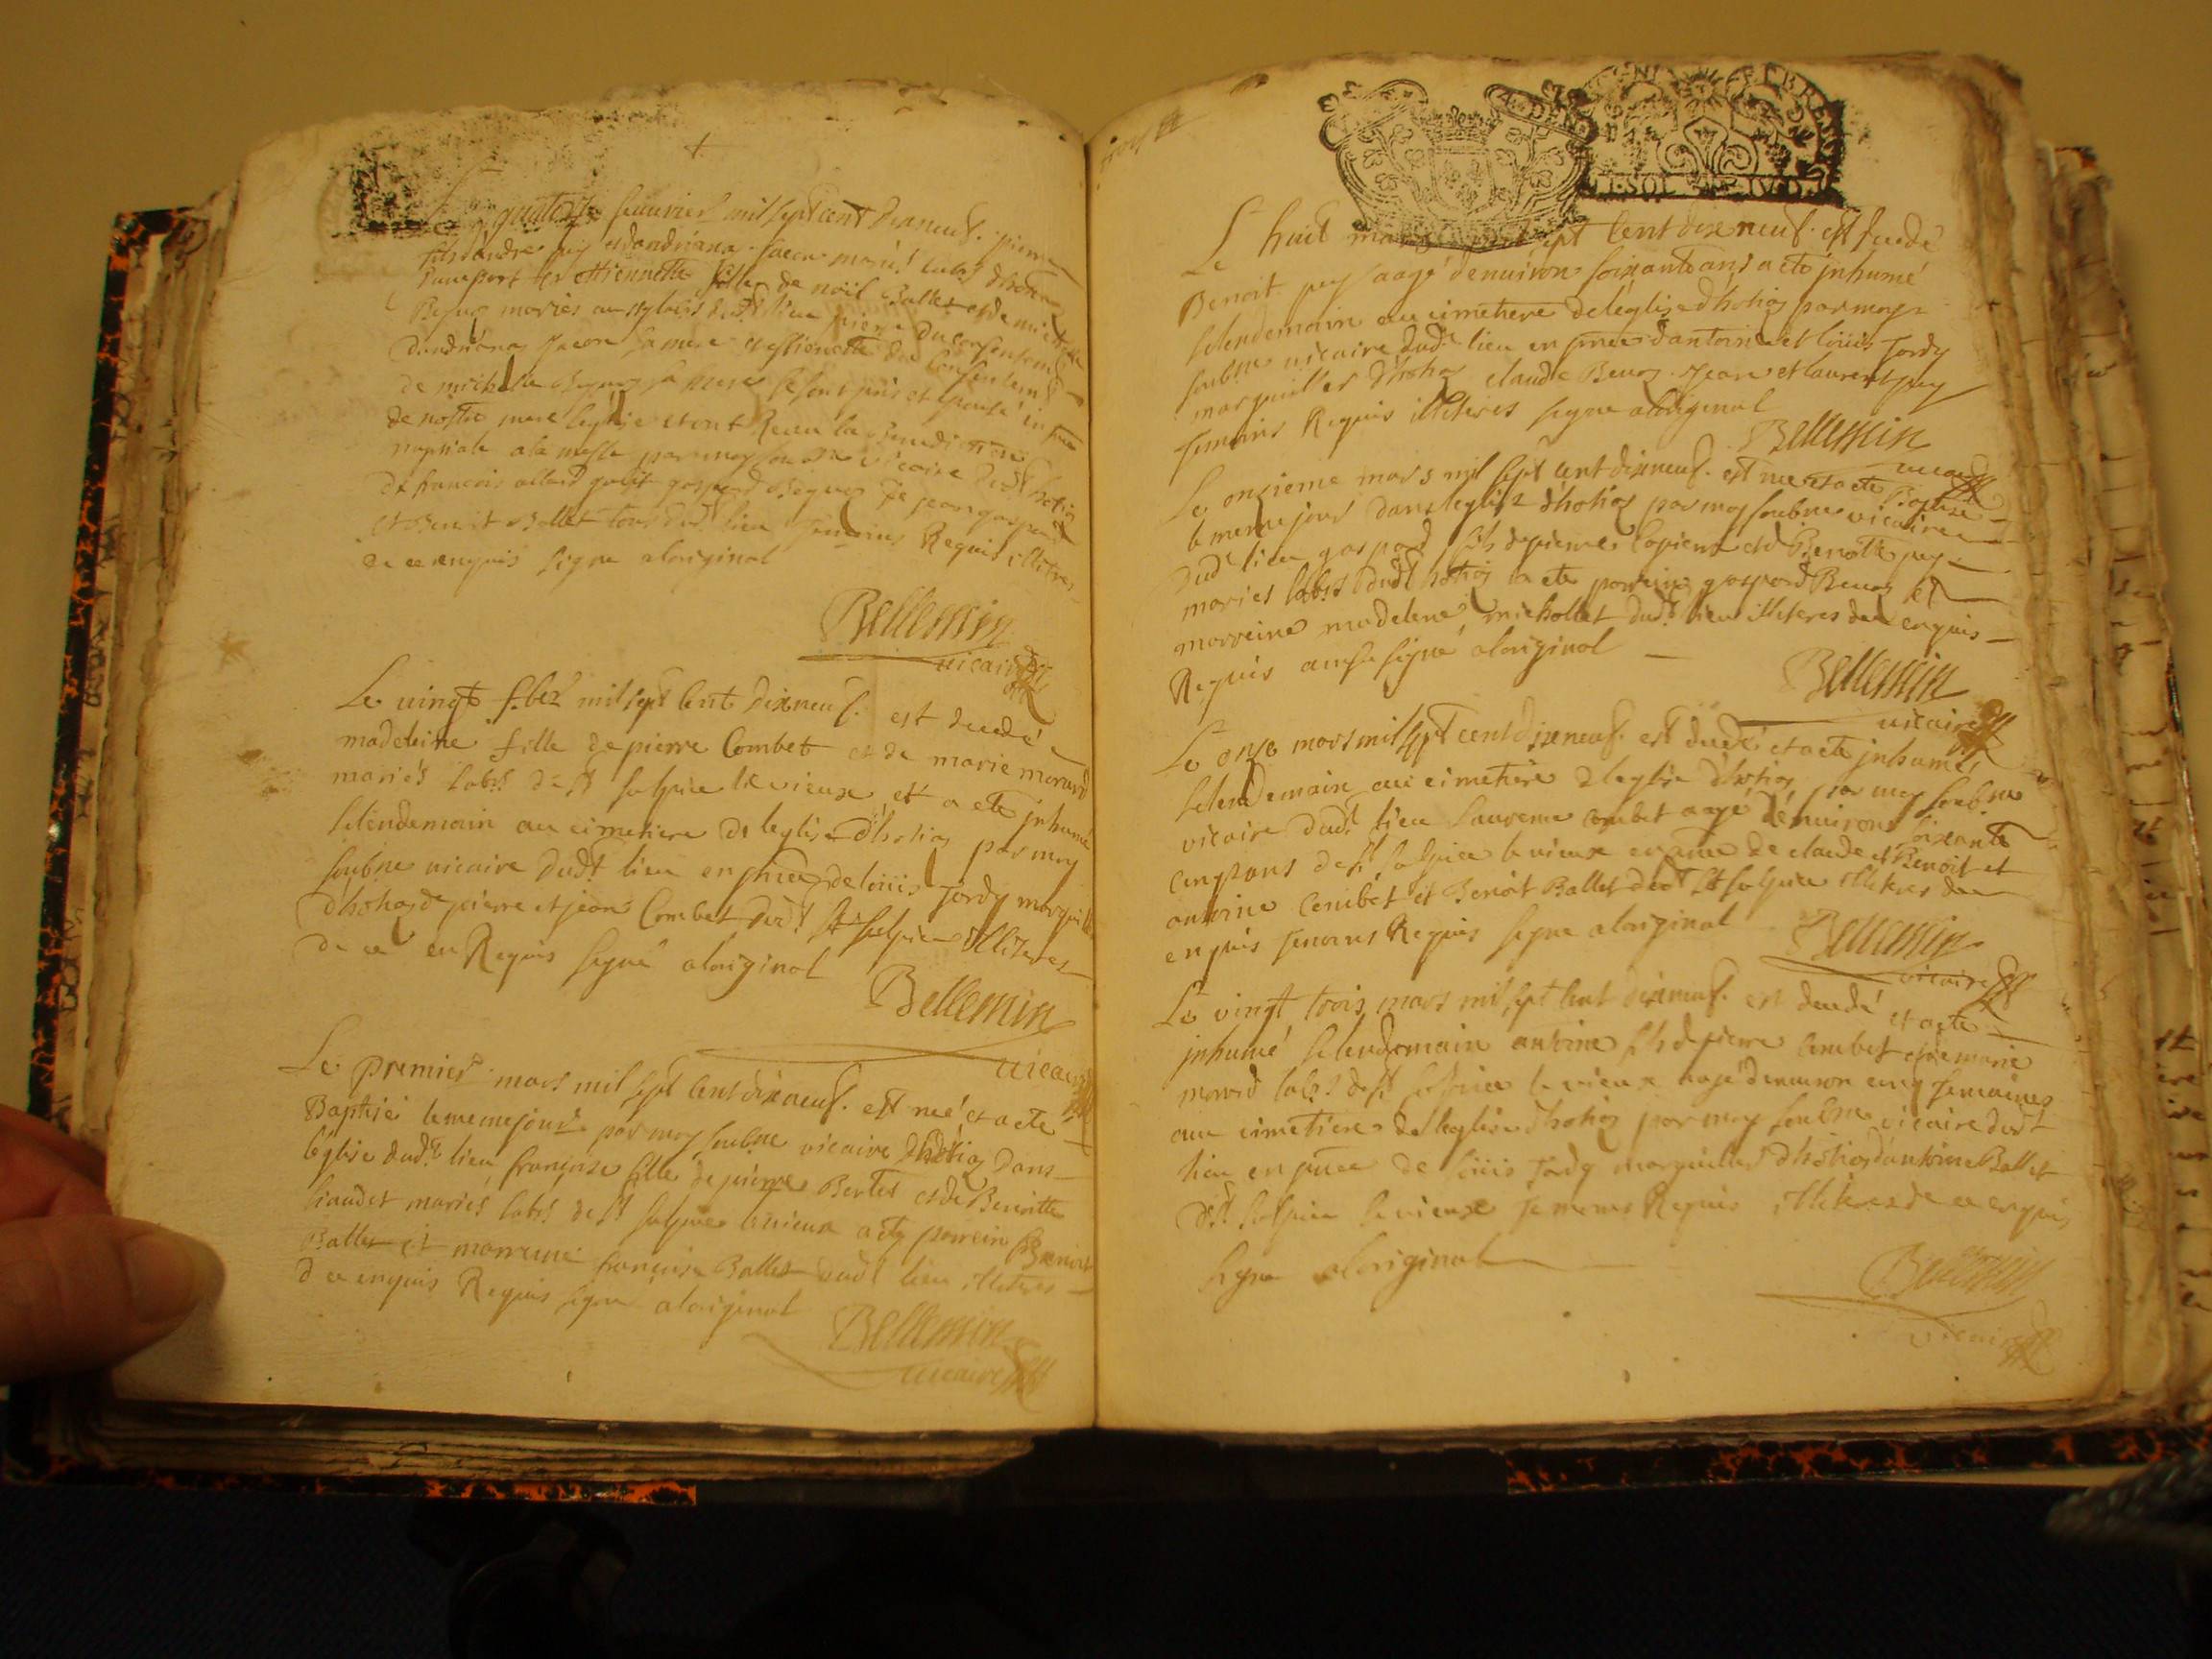 Le quatorze feurier mil sept cent dixneuf. pierre
fils dandre puy et dandriane Jacon mariés labrs dhotia
d'une part et Etiennette fille de noël Ballet et de michelle
mariés aussy labrs dudt lieu pierre du consentement
dandriane Jacon sa mere et estiennette du consentement
de michelle sa mere se sont pris et epousé en face
de nostre mere leglise et ont Receu la Benediction
nuptiale a la messe par moy soubne vicaire dudt hotia
de francois allard gaspard et jean gaspard
et Benoit Ballet tous dudt lieu temoins Requis illiteres
de ce enquis signe aloriginal
Bellemin
vicaire
Le vingt f.ber mil sept cent dixneuf. est decedé
madeleine fille de pierre Combet et de marie morard
mariés labrs de st sulpice le vieux et a ete jnhumé
le lendemain au cimetiere de leglise dhotia par moy
soubne vicaire dudt lieu en pnce de loüis Jordy marguillier
dhotia de pierre et jean Combet dudt st sulpice illiteres
de ce en Requis signé aloriginal
Bellemin
vicaire
Le premier mars mil sept cent dixneuf. est née et a ete
Baptisé le meme jour par moy soubne vicaire dhotia dans
léglise dudt lieu françoise fille de pierre Bertet et de Benoitte
mariés labrs de st sulpice le vieux a ete parrein Benoit
Ballet et marreine françoise Ballet dudt lieu illiteres
d ce enquis Requis signé aloriginal
Bellemin
vicaire
Le huit mars sept cent dixneuf. est decedé
Benoit puy aagé denuiron soixante ans a ete jnhumé
le lendemain au cimetiere deléglise dhotia par moy
soubne vicaire dudt lieu en pnce dantoine et loüis Jordy
marguillier dhotia claude Beuoz Jean et laurent puy
temoins Requis illiteres signe aloriginal
Bellemin
vicaire
Le onzieme mars mil sept cent dixneuf. est ne et a ete Baptisé
le meme jour dans leglise dhotia par moy soubne vicaire
dudt lieu gaspard fils de pierre et de Benoitte puy
mariés labrs dudt hotia a ete parrein gaspard Beuoz et
marreine madelene michollet dudt lieu illiteres de ce enquis
Requis ainsi signé aloriginal
Bellemin
vicaire
Le onze mars mil sept cent dixneuf. est decedé et a ete jnhumé
le lendemain au cimetiere d leglise dhotia par moy soubne
vicaire dudt lieu laurence combet aagé denuiron soixante
cinq ans de st sulpice le vieux en pnce de claude et Benoit et
antoine Combet et Benoit Ballet dudt st sulpice illiteres de ce
enquis temoins Requis signe aloriginal
Bellemin
vicaire
Le vingt trois mars mil sept cent dixneuf. est decedé et a ete
jnhumé le lendemain antoine fils de pierre combet et de marie
morard labrs de st sulpice le vieux aagé denuiron cinq semaines
au cimetiere de leglise dhotia par moy soubne vicaire dudt
lieu en pnce de loüis Jordy marguillier dhotia dantoine Ballet
de st sulpice le vieux temoins Requis illiteres de ce enquis
signe aloriginal
Bellemin
vicaire